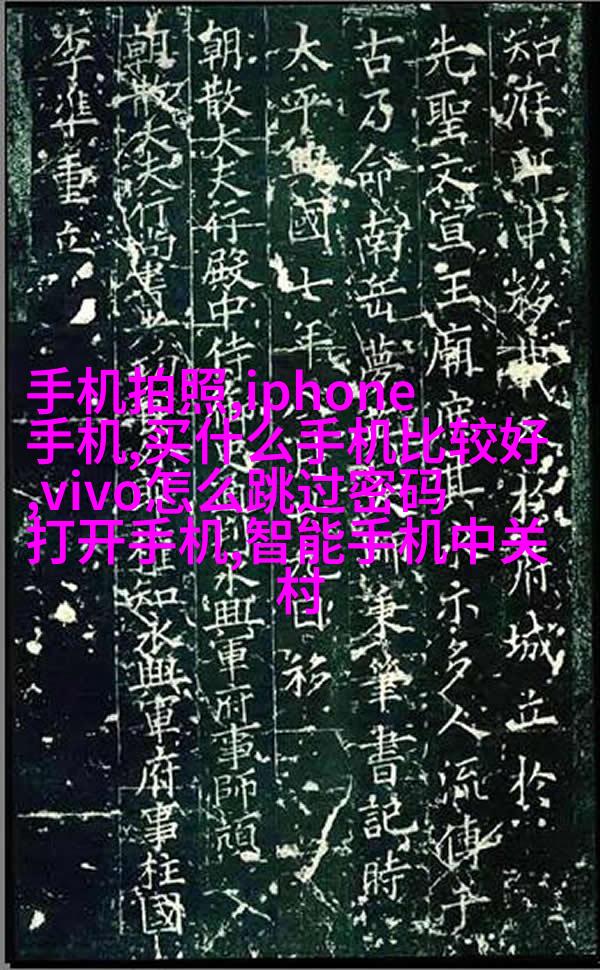 知府移府城立於
先聖文宣王廟庭其示多人流傳于
古乃命南岳夢秉筆書記時
太平興國七年日移
朝散大夫行殿中侍永興軍府事師頏
朝散大夫行尚書知永興軍府事柱國
李準重立
手机拍照,iphone
手机,买什么手机比较好
,vivo怎么跳过密码
打开手机,智能手机中关
村